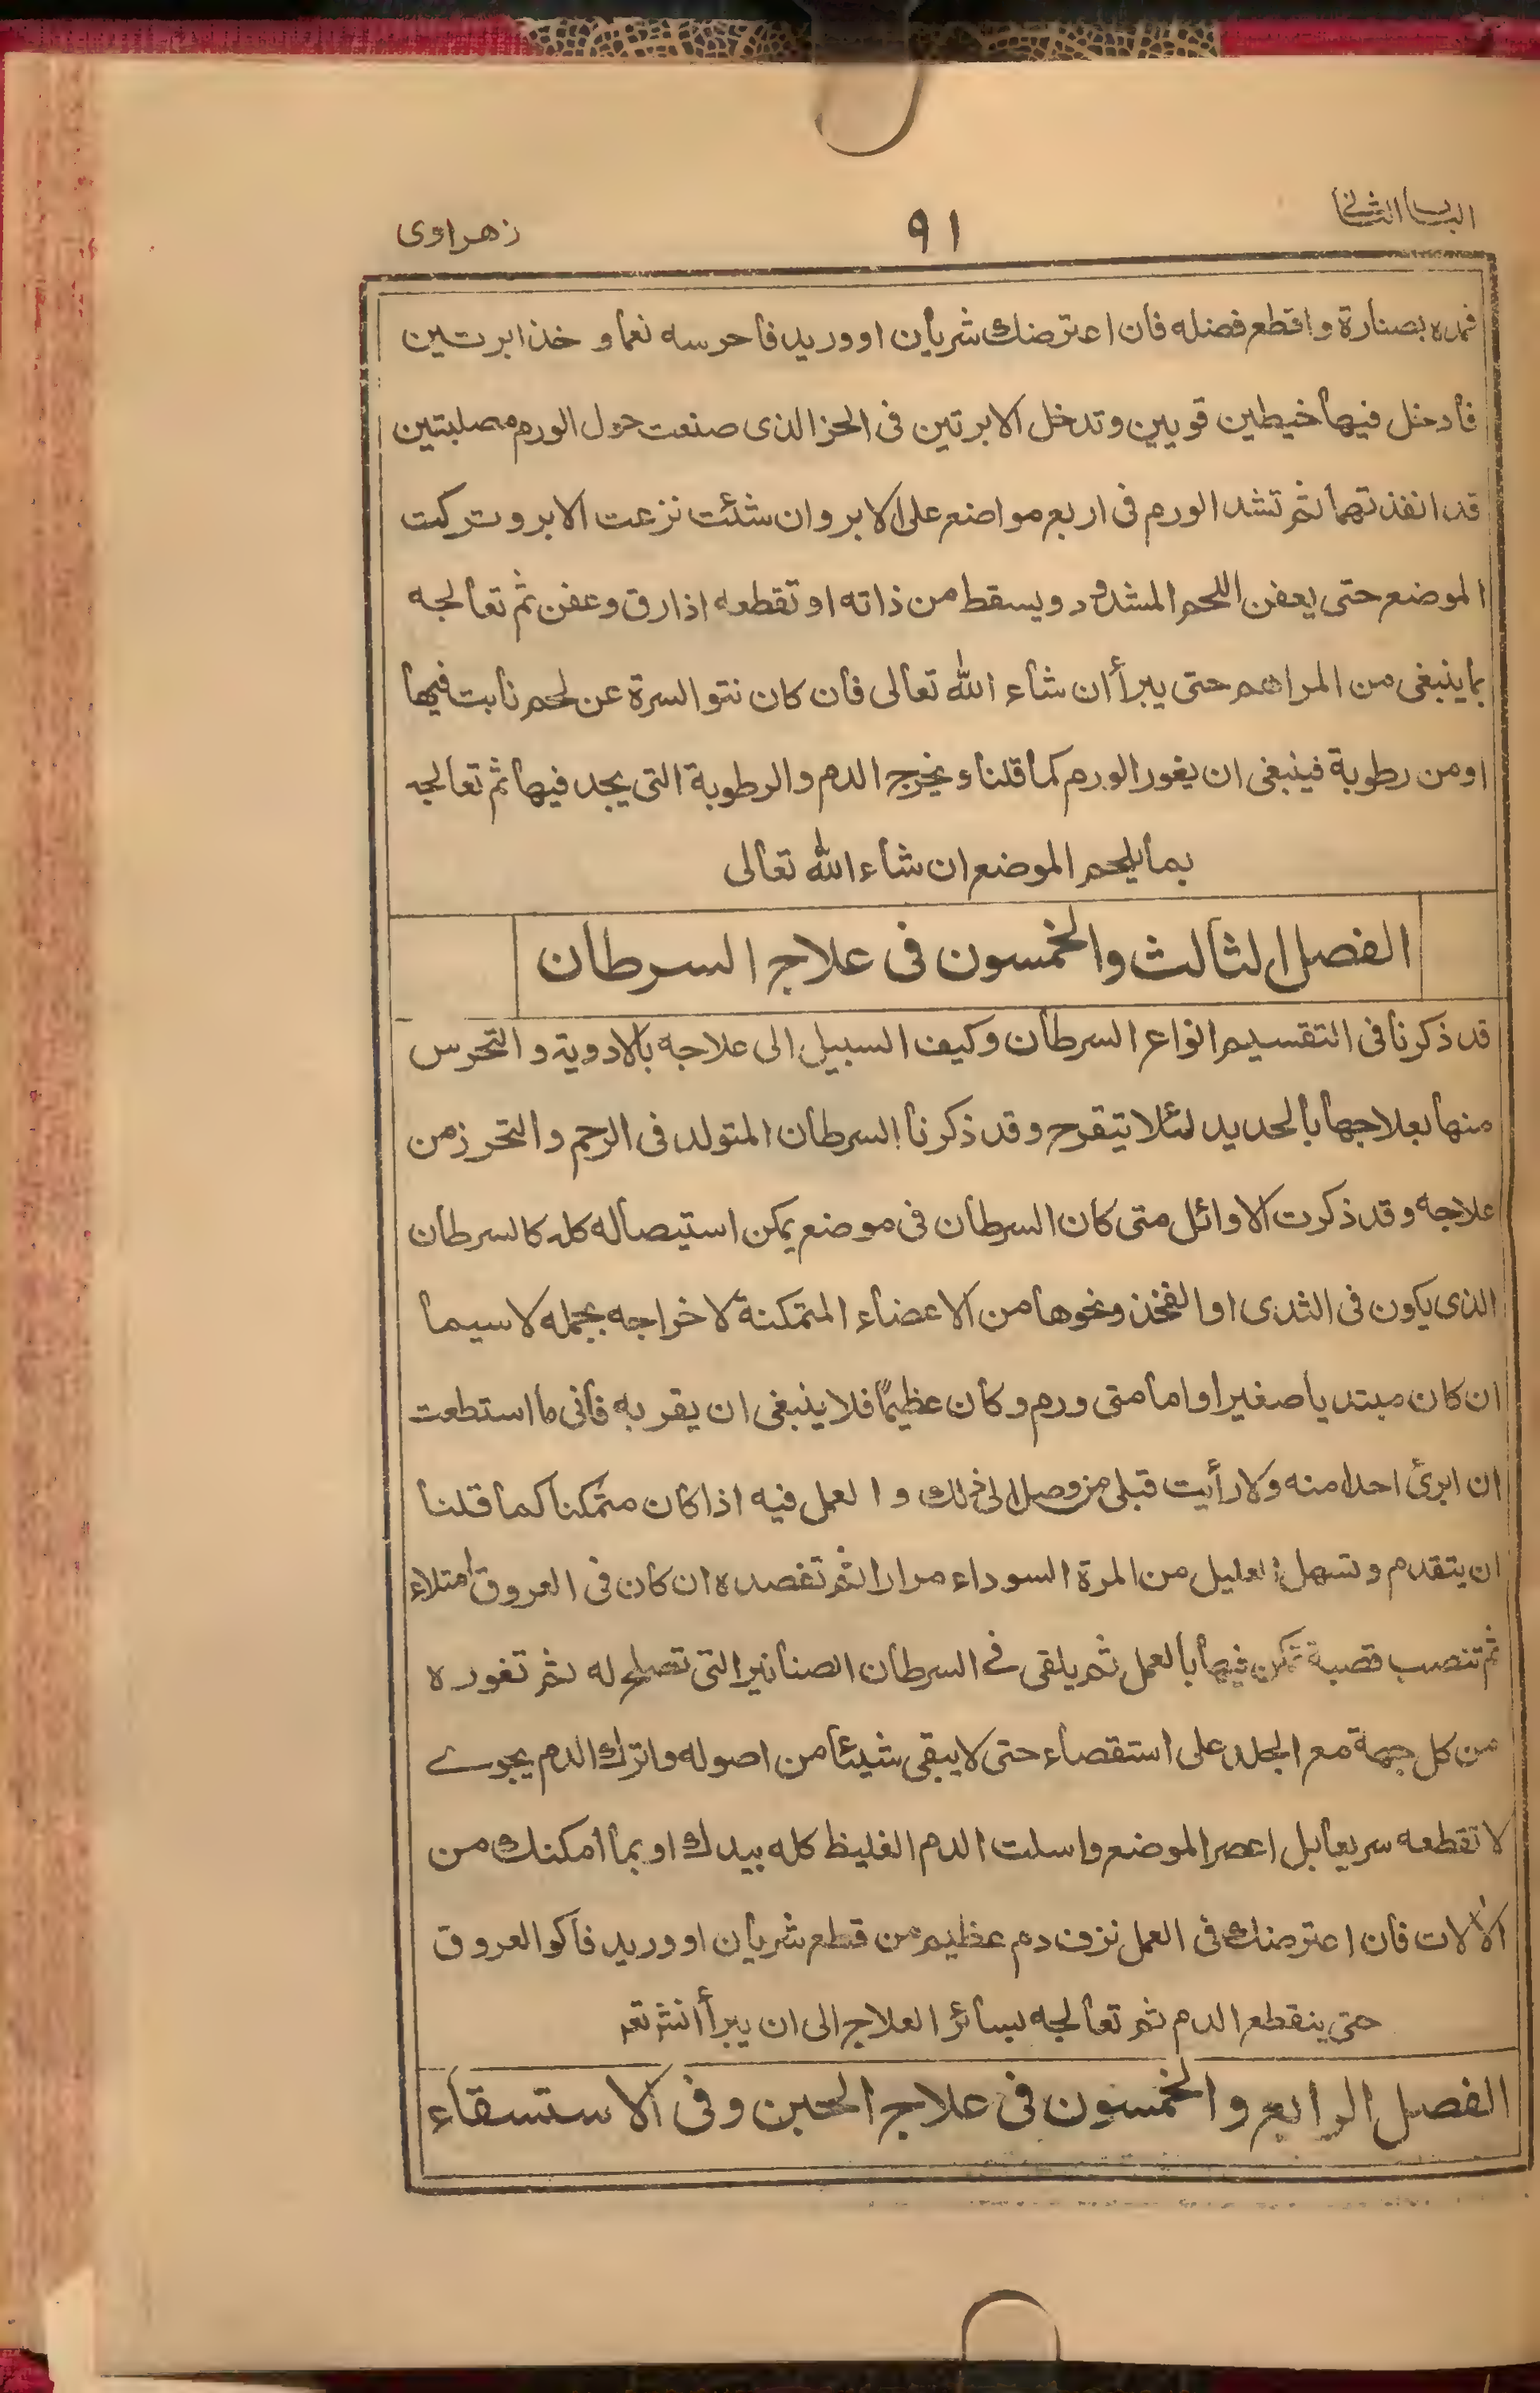 الباب الثانى
٩١
زهراوى
فمده بصنارة واقطع فضله فان اعترضك شريان او وريد فاحرسه نعما و خذ ابرتين
فادخل فيها خيطين قويين وتدخل الابرتين فى الحز الذى صنعت حول الورم مصلبتين
قد انفذتهما ثم تشد الورم فى اربع مواضع على الابر وان شئت نزعت الابر وتركت
الموضع حتى يعفن اللحم المشدود ويسقط من ذاته او تقطعه اذا رق وعفن ثم تعالجه
بما ينبغى من المراهم حتى يبرأ ان شاء الله تعالى فان كان نتو السرة عن لحم نابت فيها
او من رطوبة فينبغى ان يغور الورم كما قلنا و يخرج الدم والرطوبة التى يجد فيها ثم تعالجه
بما يلحم الموضع ان شاء الله تعالى
الفصل الثالث والخمسون فى علاج السرطان
قد ذكرنا فى التقسيم انواع السرطان وكيف السبيل الى علاجه بالادوية و التحرس
منها بعلاجها بالحديد لئلا يتقرح وقد ذكرنا السرطان المتولد فى الرحم والتحرز من
علاجه وقد ذكرت الاوائل متى كان السرطان فى موضع يمكن استيصاله كله كالسرطان
الذى يكون فى الثدى او الفخذ ونحوها من الاعضاء المتمكنة لاخراجه بجمله لا سيما
ان كان مبتديا صغيرا واما متى ورم وكان عظيمًا فلا ينبغى ان يقربه فانى ما استطعت
ان ابرئ احدا منه ولا رأيت قبلى من وصل الى ذلك و العمل فيه اذا كان متمكنا كما قلنا
ان يتقدم وتسهل العليل من المرة السوداء مرارا ثم تفصده ان كان فى العروق امتلاء
ثم تنصب قصبة تمكن فيها بالعمل ثم يلقى فى السرطان الصنانير التى تصلح له ثم تغوره
من كل جهة مع الجلد على استقصاء حتى لا يبقى شيئا من اصوله واترك الدم يجرى
لا تقطعه سريعا بل اعصر الموضع واسلت الدم الغليظ كله بيدك او بما امكنك من
الآلات فان اعترضك فى العمل نزف دم عظيم من قطع شريان او وريد فاكو العروق
حتى ينقطع الدم ثم تعالجه بسائر العلاج الى ان يبرأ انش تعه
الفصل الرابع والخمسون فى علاج الحبن وفى الاستسقاء